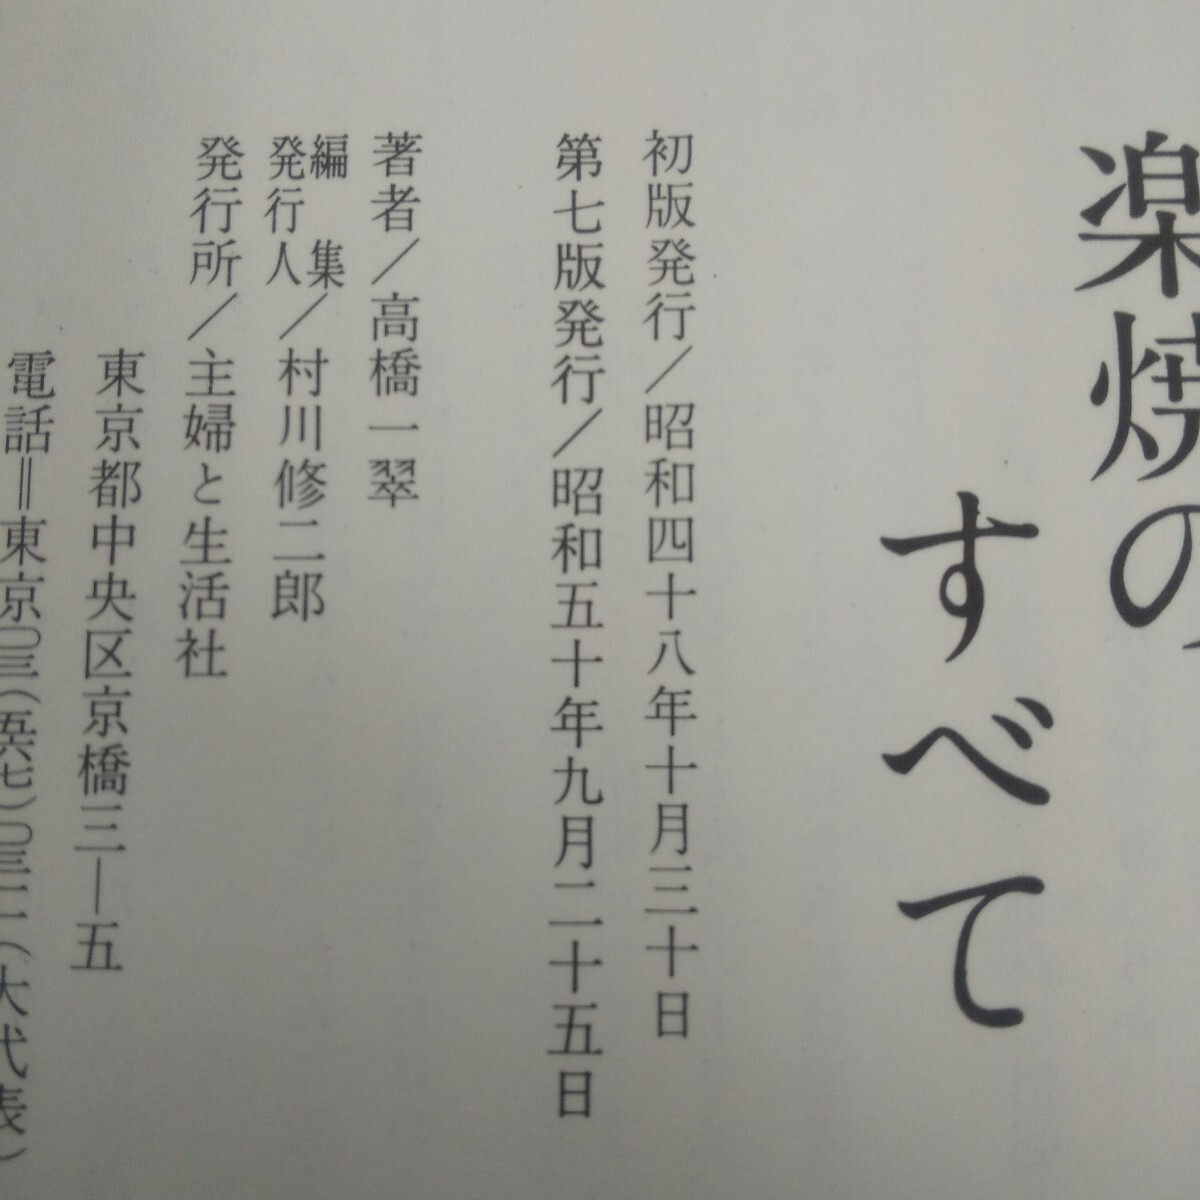 楽焼の
すべて
初版発行／昭和四十八年十月三十日
第七版発行／昭和五十年九月二十五日
著者／高橋一翠
編集
発行人／村川修二郎
発行所／主婦と生活社
東京都中央区京橋三―五
電話＝東京〇三(五六七)〇三一一(大代表)